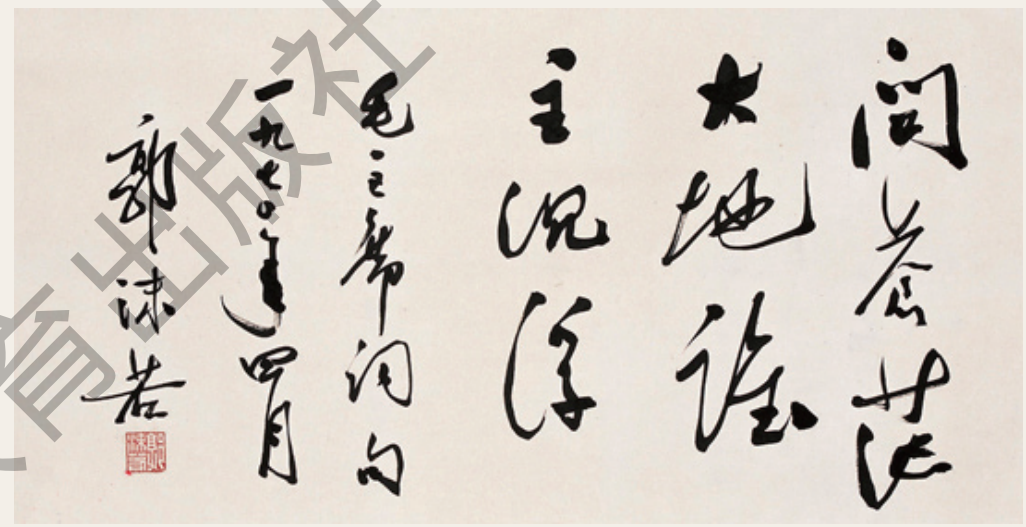 问苍茫
大地谁
主沉浮
毛主席词句
一九七〇年四月
郭沫若
育出版社